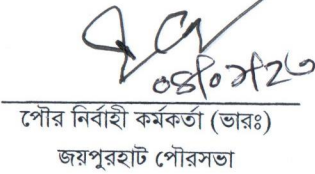 পৌর নির্বাহী কর্মকর্তা (ভারঃ)
জয়পুরহাট পৌরসভা